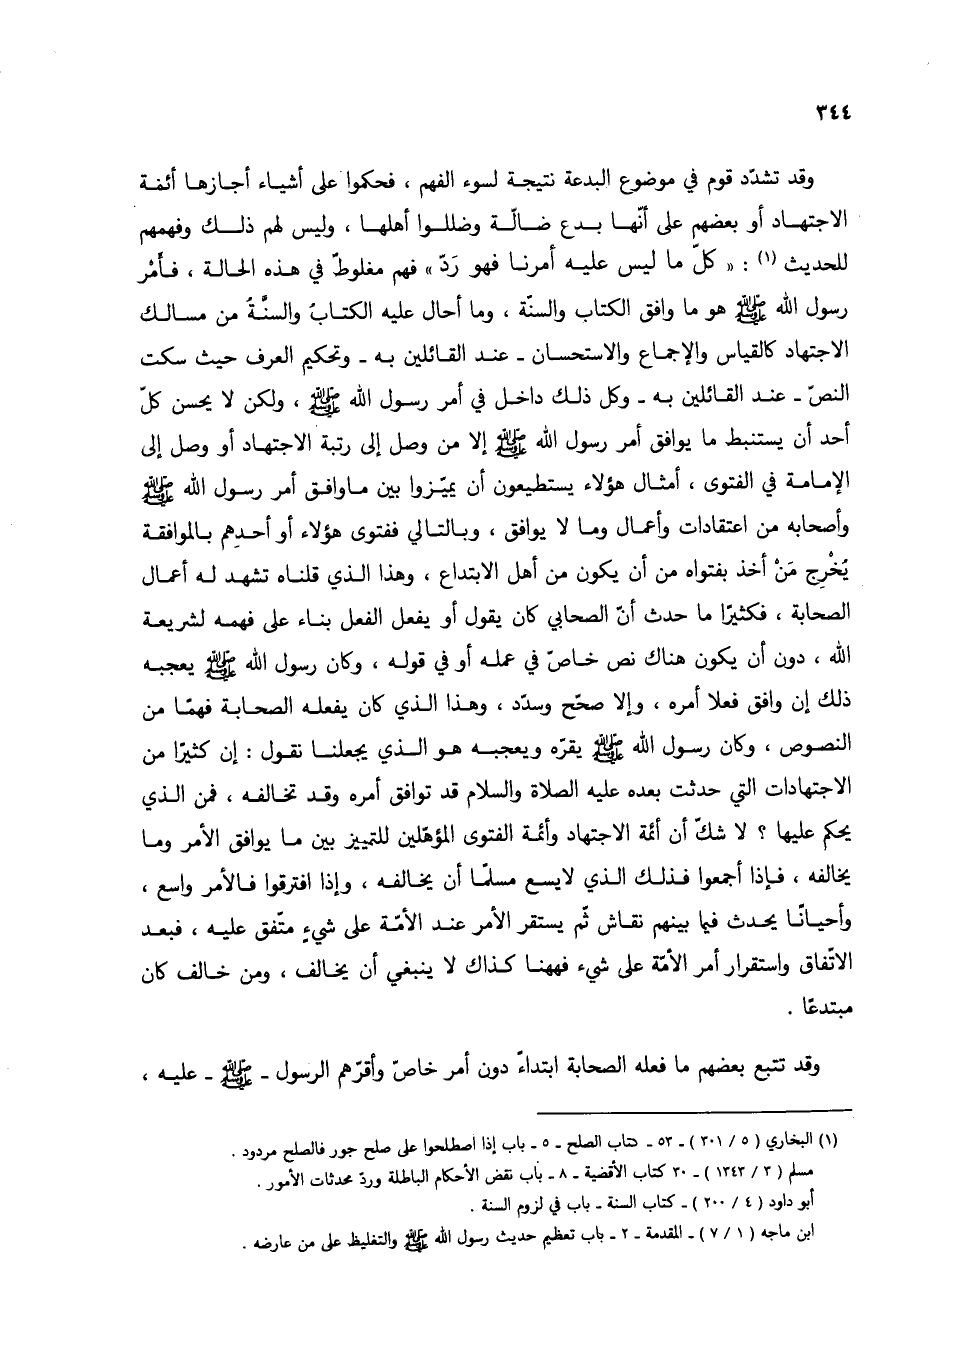 ٣٤٤
وقد تشدّد قوم في موضوع البدعة نتيجة لسوء الفهم ، فحكموا على أشياء أجازها أئمة
الاجتهاد أو بعضهم على أنّها بدع ضالّة وضللوا أهلها ، وليس لهم ذلك وفهمهم
للحديث (١) : « كلّ ما ليس عليه أمرنا فهو رَدّ » فهم مغلوطٌ في هذه الحالة ، فأمْرُ
رسول الله ﷺ هو ما وافق الكتاب والسنّة ، وما أحال عليه الكتابُ والسنَّةُ من مسالك
الاجتهاد كالقياس والإجماع والاستحسان ـ عند القائلين به ـ وتحكيم العرف حيث سكت
النصّ ـ عند القائلين به ـ وكل ذلك داخل في أمر رسول الله ﷺ ، ولكن لا يحسن كلّ
أحد أن يستنبط ما يوافق أمر رسول الله ﷺ إلا من وصل إلى رتبة الاجتهاد أو وصل إلى
الإمامة في الفتوى ، أمثال هؤلاء يستطيعون أن يميّزوا بين ماوافق أمر رسول الله ﷺ
وأصحابه من اعتقادات وأعمال وما لا يوافق ، وبالتالي ففتوى هؤلاء أو أحدهم بالموافقة
يُخْرِج مَنْ أخذ بفتواه من أن يكون من أهل الابتداع ، وهذا الذي قلناه تشهد له أعمال
الصحابة ، فكثيرًا ما حدث أنّ الصحابي كان يقول أو يفعل الفعل بناء على فهمه لشريعة
الله ، دون أن يكون هناك نص خاصّ في عمله أو في قوله ، وكان رسول الله ﷺ يعجبه
ذلك إن وافق فعلا أمره ، وإلا صحّح وسدّد ، وهذا الذي كان يفعله الصحابة فهمًا من
النصوص ، وكان رسول الله ﷺ يقرّه ويعجبه هو الذي يجعلنا نقول : إن كثيرًا من
الاجتهادات التي حدثت بعده عليه الصلاة والسلام قد توافق أمره وقد تخالفه ، فمن الذي
يحكم عليها ؟ لا شكّ أن أئمة الاجتهاد وأئمة الفتوى المؤهّلين للتمييز بين ما يوافق الأمر وما
يخالفه ، فإذا أجمعوا فذلك الذي لايسع مسلمًا أن يخالفه ، وإذا افترقوا فالأمر واسع ،
وأحيانًا يحدث فيما بينهم نقاش ثم يستقر الأمر عند الأمّة على شيءٍ متّفق عليه ، فبعد
الاتّفاق واستقرار أمر الأمّة على شيء فههنا كذاك لا ينبغي أن يخالف ، ومن خالف كان
مبتدعًا .
وقد تتبع بعضهم ما فعله الصحابة ابتداءً دون أمر خاصّ وأقرّهم الرسول ـ ﷺ ـ عليه ،
(١) البخاري ( ٥ / ٣٠١ ) ـ ٥٣ ـ كتاب الصلح ـ ٥ ـ باب إذا اصطلحوا على صلح جور فالصلح مردود .
مسلم ( ٣ / ١٣٤٣ ) ـ ٣٠ كتاب الأقضية ـ ٨ ـ باب نقض الأحكام الباطلة وردّ محدثات الأمور .
أبو داود ( ٤ / ٢٠٠ ) ـ كتاب السنة ـ باب في لزوم السنة .
ابن ماجه ( ١ / ٧ ) ـ المقدمة ـ ٢ ـ باب تعظيم حديث رسول الله ﷺ والتغليظ على من عارضه .